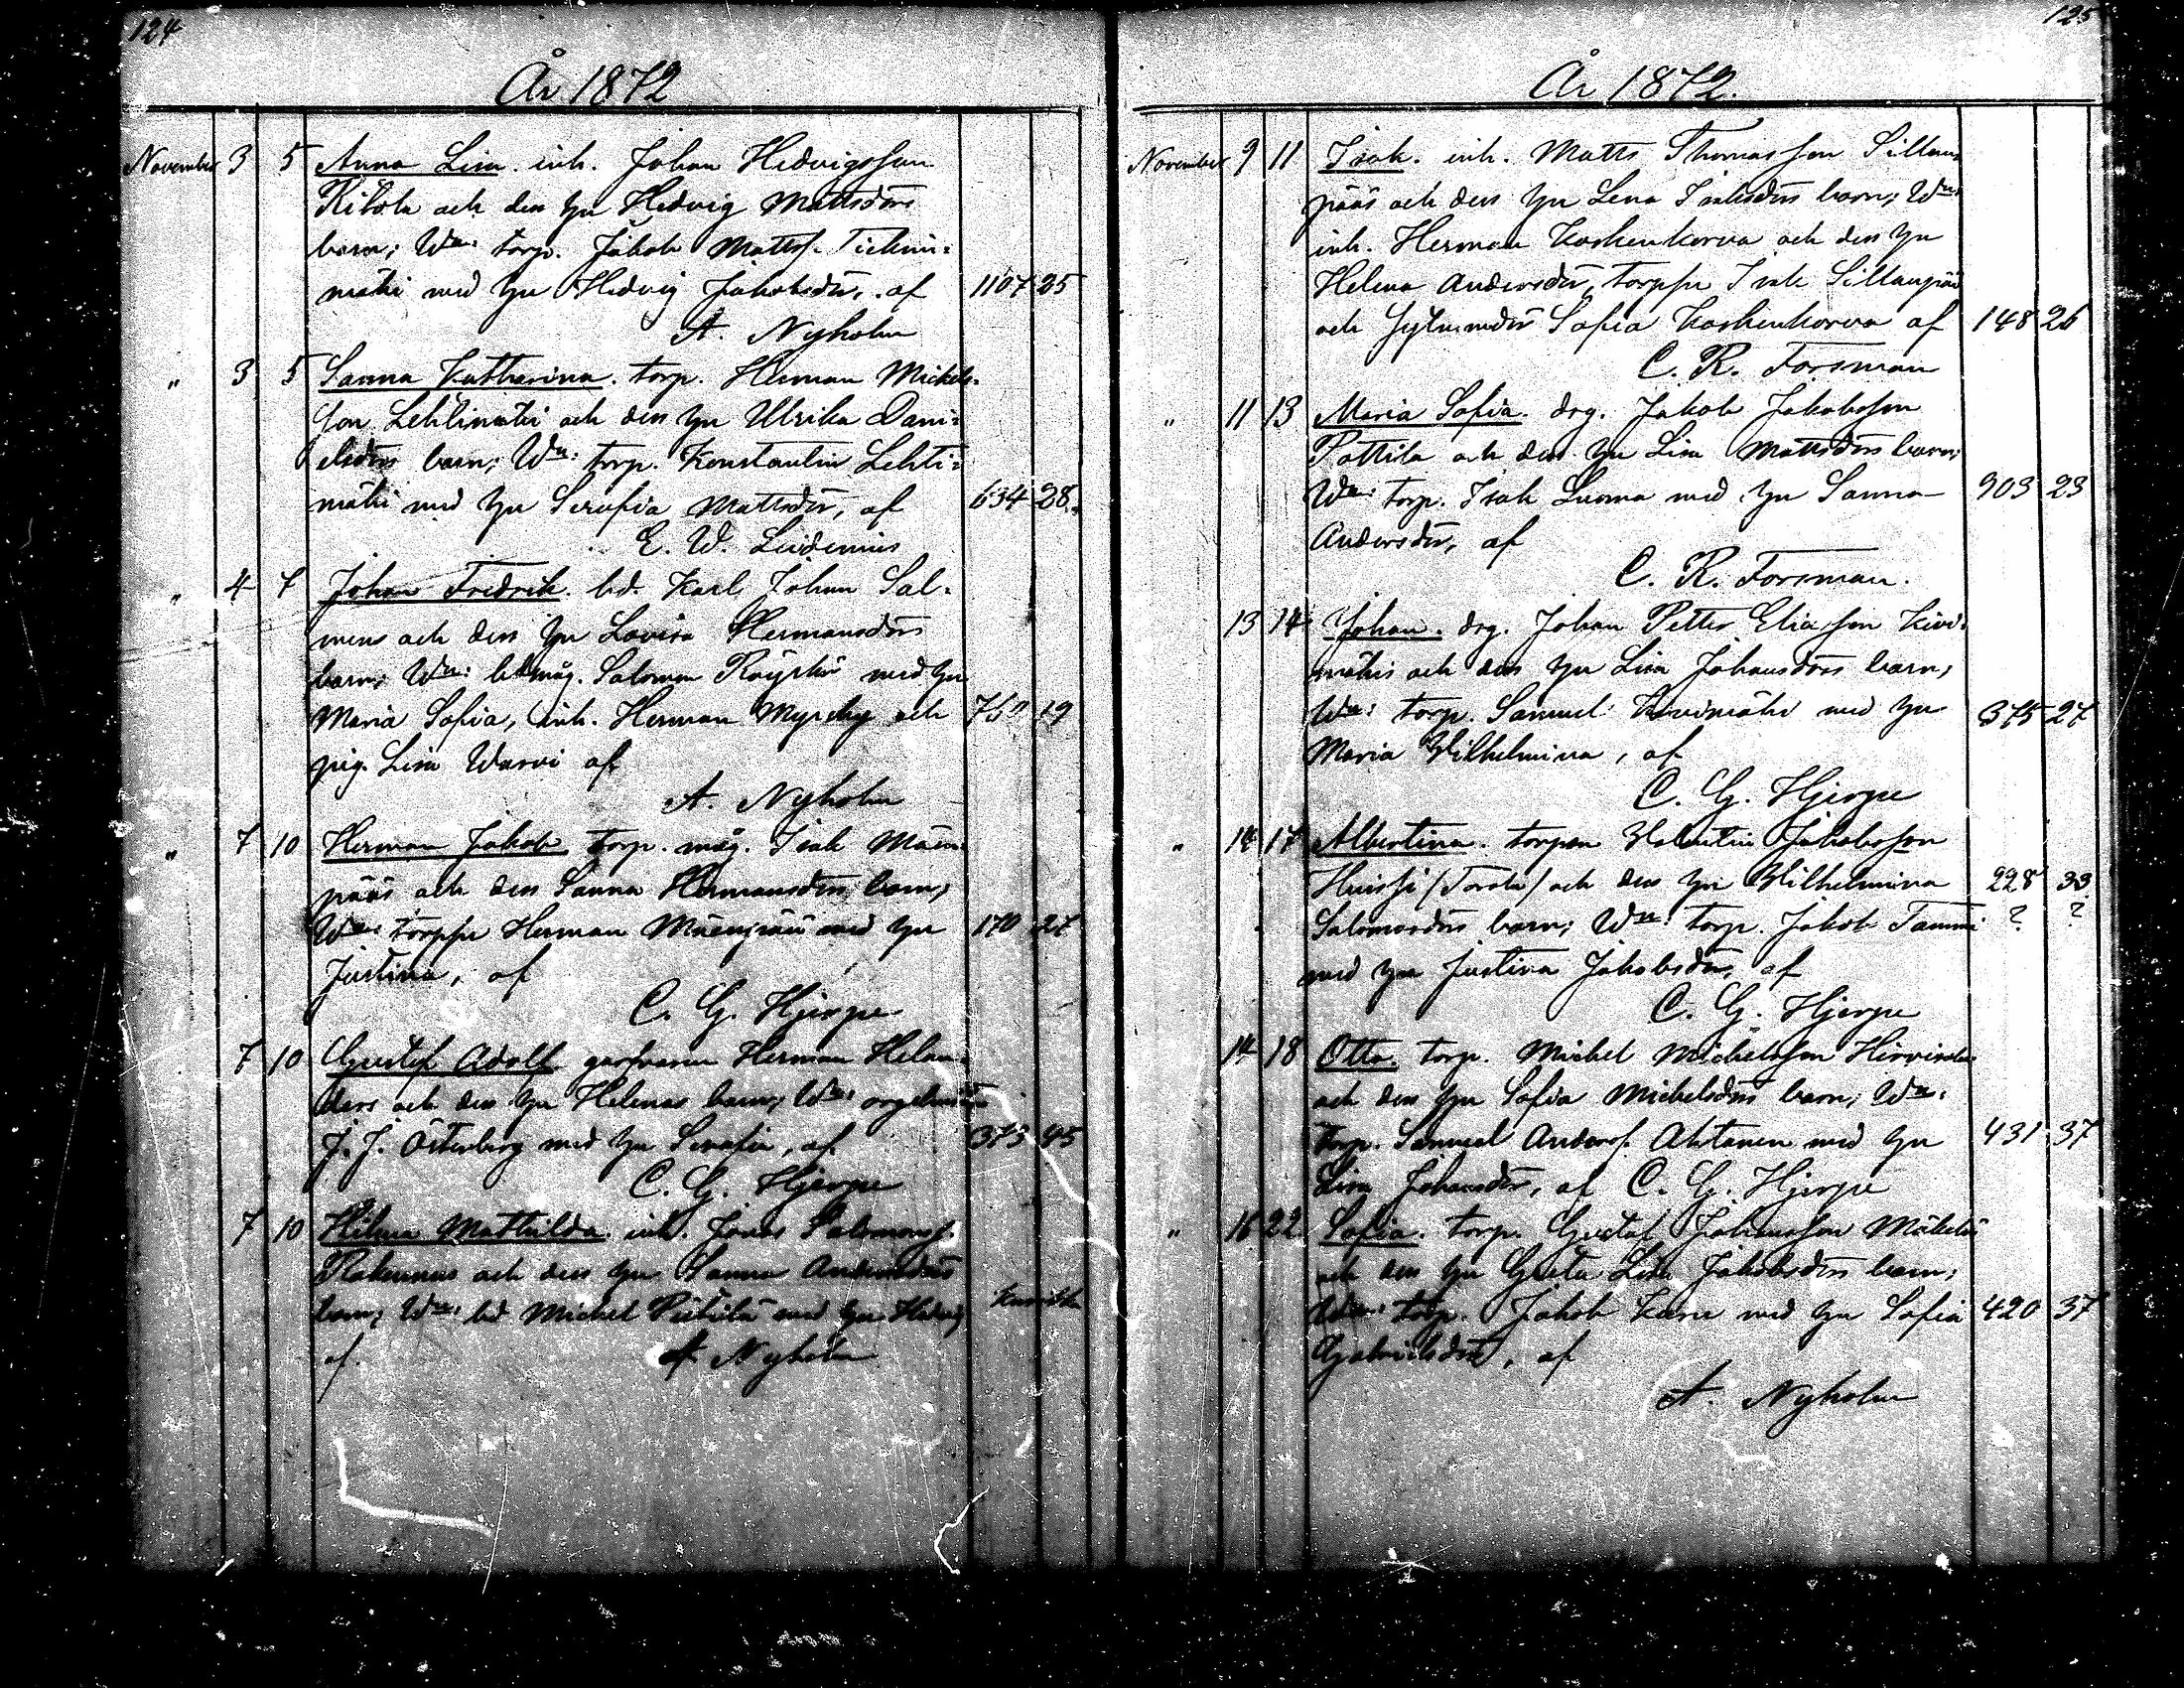 124
År 1872
November 3 5 Anna Lisa. inh. Johan Hedvigsson
Ribola och dess hu Hedvig Mattsdrs
barn; Wn: torp. Jakob Mattss.
mäki med hu Hedvig Jakobsdr, af 1107 25
A. Nyholm
" 3 5 Sanna Katharina. torp. Herman Mickels-
son Lehtimäki och dess hu Ulrika Dani=
elsdrs barn; Wn: torp. Konstantin Lehti=
mäki med hu Serafia Mattsdr, af 634 28.
E. W. Leidenius
" 4 7 Johan Fredrik. bd. Karl Johan Sal-
mens och dess hu Lovisa Hermansdrs
barn; Wn: bdmåg. Salomon Röyskö med hu
Maria Sofia, inh. Herman Myrsky och 760 19
pig. Lisa Warvi af
A. Nyholm
" 7 10 Herman Jakob. torp. måg. Isak Mäen-
pääs och dess Sanna Hermansdrs barn;
Wn: torppu Herman Mäenpää med hu 170 27
Justina, af
C. G. Hjerpe
7 10 Gustaf Adolf garfvaren Herman Helan-
ders och dess hu Helenas barn; Wn:
J. J. Österberg med hu Serafia, af 373 45
C. G. Hjerpe
7 10 Hilma Mathilda. inh. Jonas Salomonss.
och dess hu Sanna Andersdrs
barn; Wn: bd Michel Pietilä med hu Hedvig
af. A. Nyholm
125
År 1872.
November 9 11 Isak. inh. Matts Thomasson Sillan-
pääs och dess hu Lena Isaksdrs barn; Wn:
inh. Herman Koskenkorva och dess hu
Helena Andersdr, torppu Isak Sillanpää
och Sofia Koskenkorva af 148 26
C. R. Forsman
" 11 13 Maria Sofia. drg. Jakob Jakobsson
Pottila och dess hu Lisa Mattsdrs barn;
Wn: torp. Isak Luoma med hu Sanna 903 23
Andersdr, af
C. R. Forsman.
13 14 Johan. drg. Johan Petter Eliasson Kivi-
mäkis och dess hu Lisa Johansdrs barn;
Wn: torp. Samuel Kivimäki med hu 375 27
Maria Wilhelmina, af
C. G. Hjerpe
" 14 17 Albertina. torpen Valentin Jakobsson
Huissi /Torola/ och dess hu Wilhelmina 228 33
Salomonsdrs barn; Wn: torp. Jakob Tammi ? ?
med hu Justina Jakobsdr, af
C. G. Hjerpe
14 18 Otto. torp. Michel Michelsson
och dess hu Sofia Michelsdrs barn; Wn:
torp. Samuel Anderss. Ahtanen med hu 431 37
Lisa Johansdr, af C. G. Hjerpe
" 16 22 Sofia. torp. Gustaf Johansson Mäkelä
och dess hu Greta Lisa Jakobsdrs barn;
Wn: torp. Jakob Karu med hu Sofia 420 37
Gabrielsdr, af
A. Nyholm